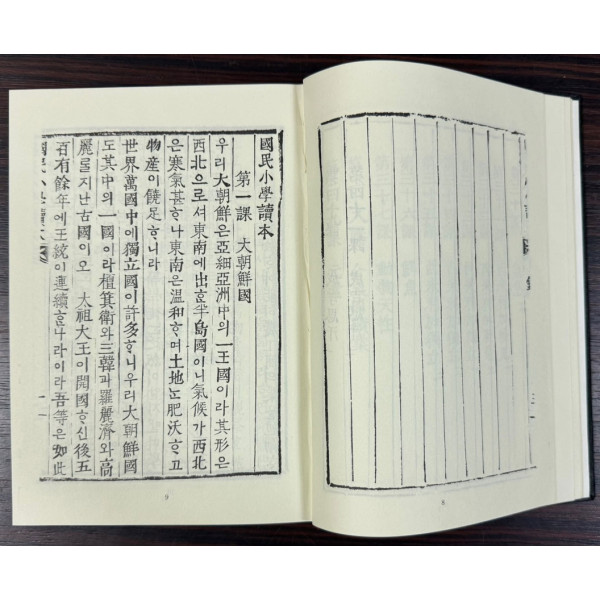 國民小學讀本
第一課 大朝鮮國
우리大朝鮮은亞細亞洲中의一王國이라其形은
西北으로셔東南에出ᄒᆞᆫ半島國이니氣候가西北
은寒氣甚ᄒᆞ나東南은溫和ᄒᆞ며土地ᄂᆞᆫ肥沃ᄒᆞ고
物産이饒足ᄒᆞ니라
世界萬國中에獨立國이許多ᄒᆞ니우리大朝鮮國
도其中의一國이라檀箕衛와三韓과羅麗濟와高
麗를지난古國이오 太祖大王이開國ᄒᆞ신後五
百有餘年에王統이連續ᄒᆞᆫ나라이라吾等은如此
國民小學讀本
一
9
8